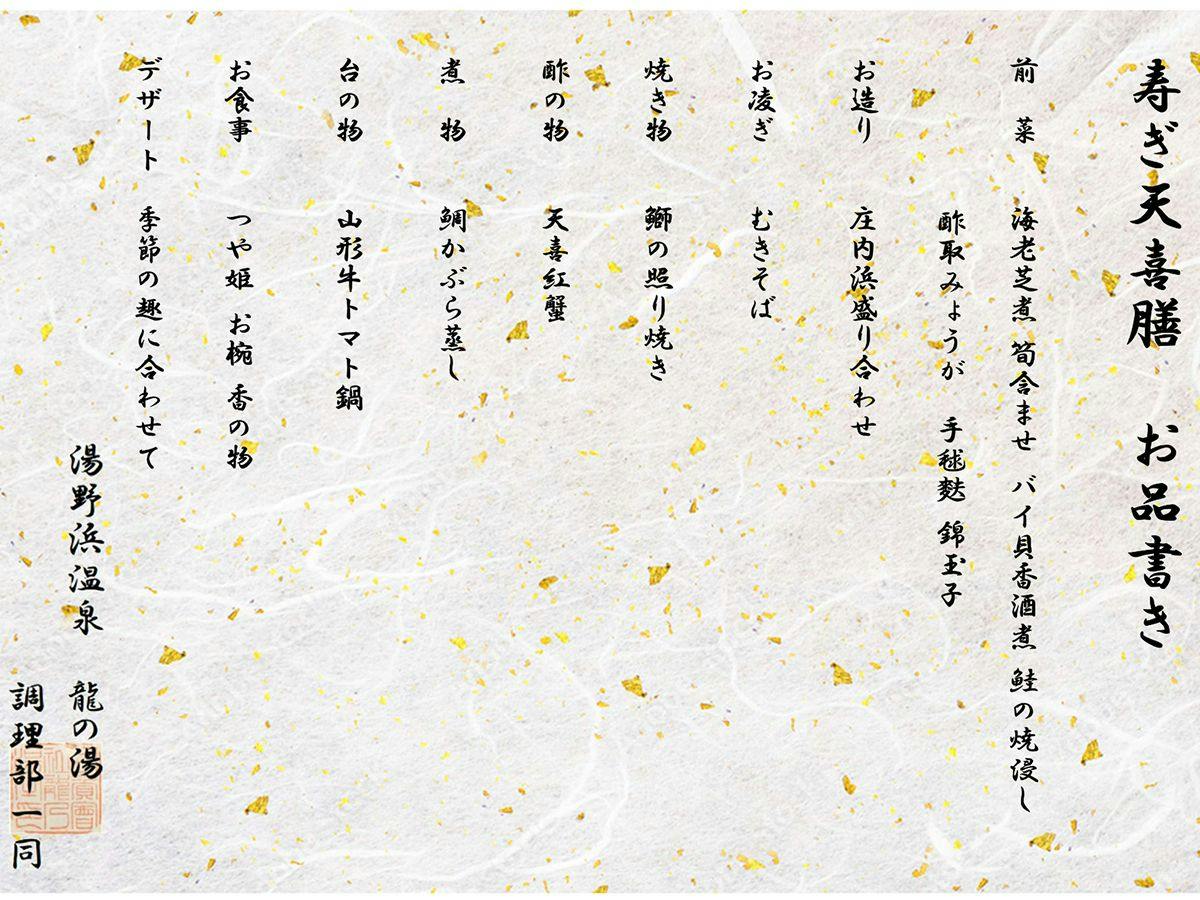 寿ぎ天喜膳 お品書き
前菜 海老芝煮 筍含ませ バイ貝香酒煮 鮭の焼浸し
酢取みょうが 手毬麩 錦玉子
お造り 庄内浜盛り合わせ
お凌ぎ むきそば
焼き物 鰤の照り焼き
酢の物 天喜紅蟹
煮物 鯛かぶら蒸し
台の物 山形牛トマト鍋
お食事 つや姫 お椀 香の物
デザート 季節の趣に合わせて
湯野浜温泉 龍の湯
調理部一同